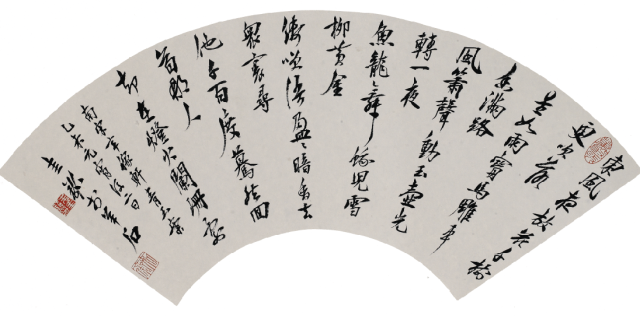 東風夜放花千樹
更吹落
星如雨寶馬雕車
香滿路
鳳簫聲動玉壺光
轉一夜
魚龍舞蛾兒雪
柳黃金
縷笑語盈盈暗香去
眾裏尋
他千百度驀然回
首那人
却在燈火闌珊處
南宋辛稼軒青玉案
乙未元宵